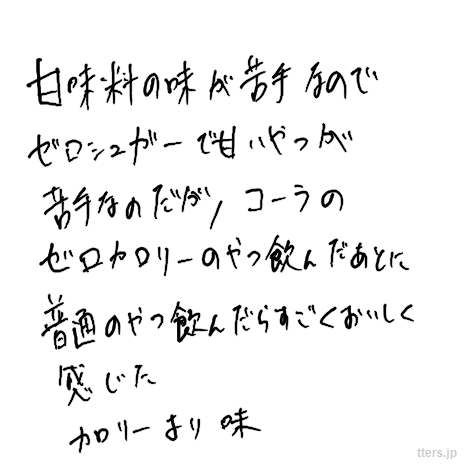 甘味料の味が苦手なので
ゼロシュガーで甘いやつが
苦手なのだが、コーラの
ゼロカロリーのやつ飲んだあとに
普通のやつ飲んだらすごくおいしく
感じた
カロリーより味
tters.jp